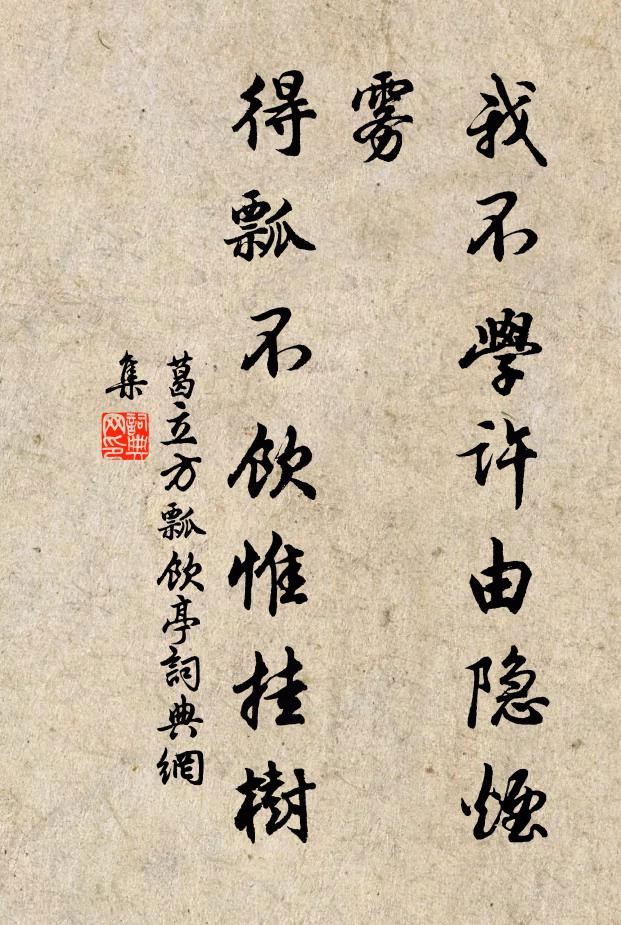 我不學许由隐煙
雾
得瓢不飲惟挂樹
葛立方瓢飲亭詞典網
集
詞典
网印